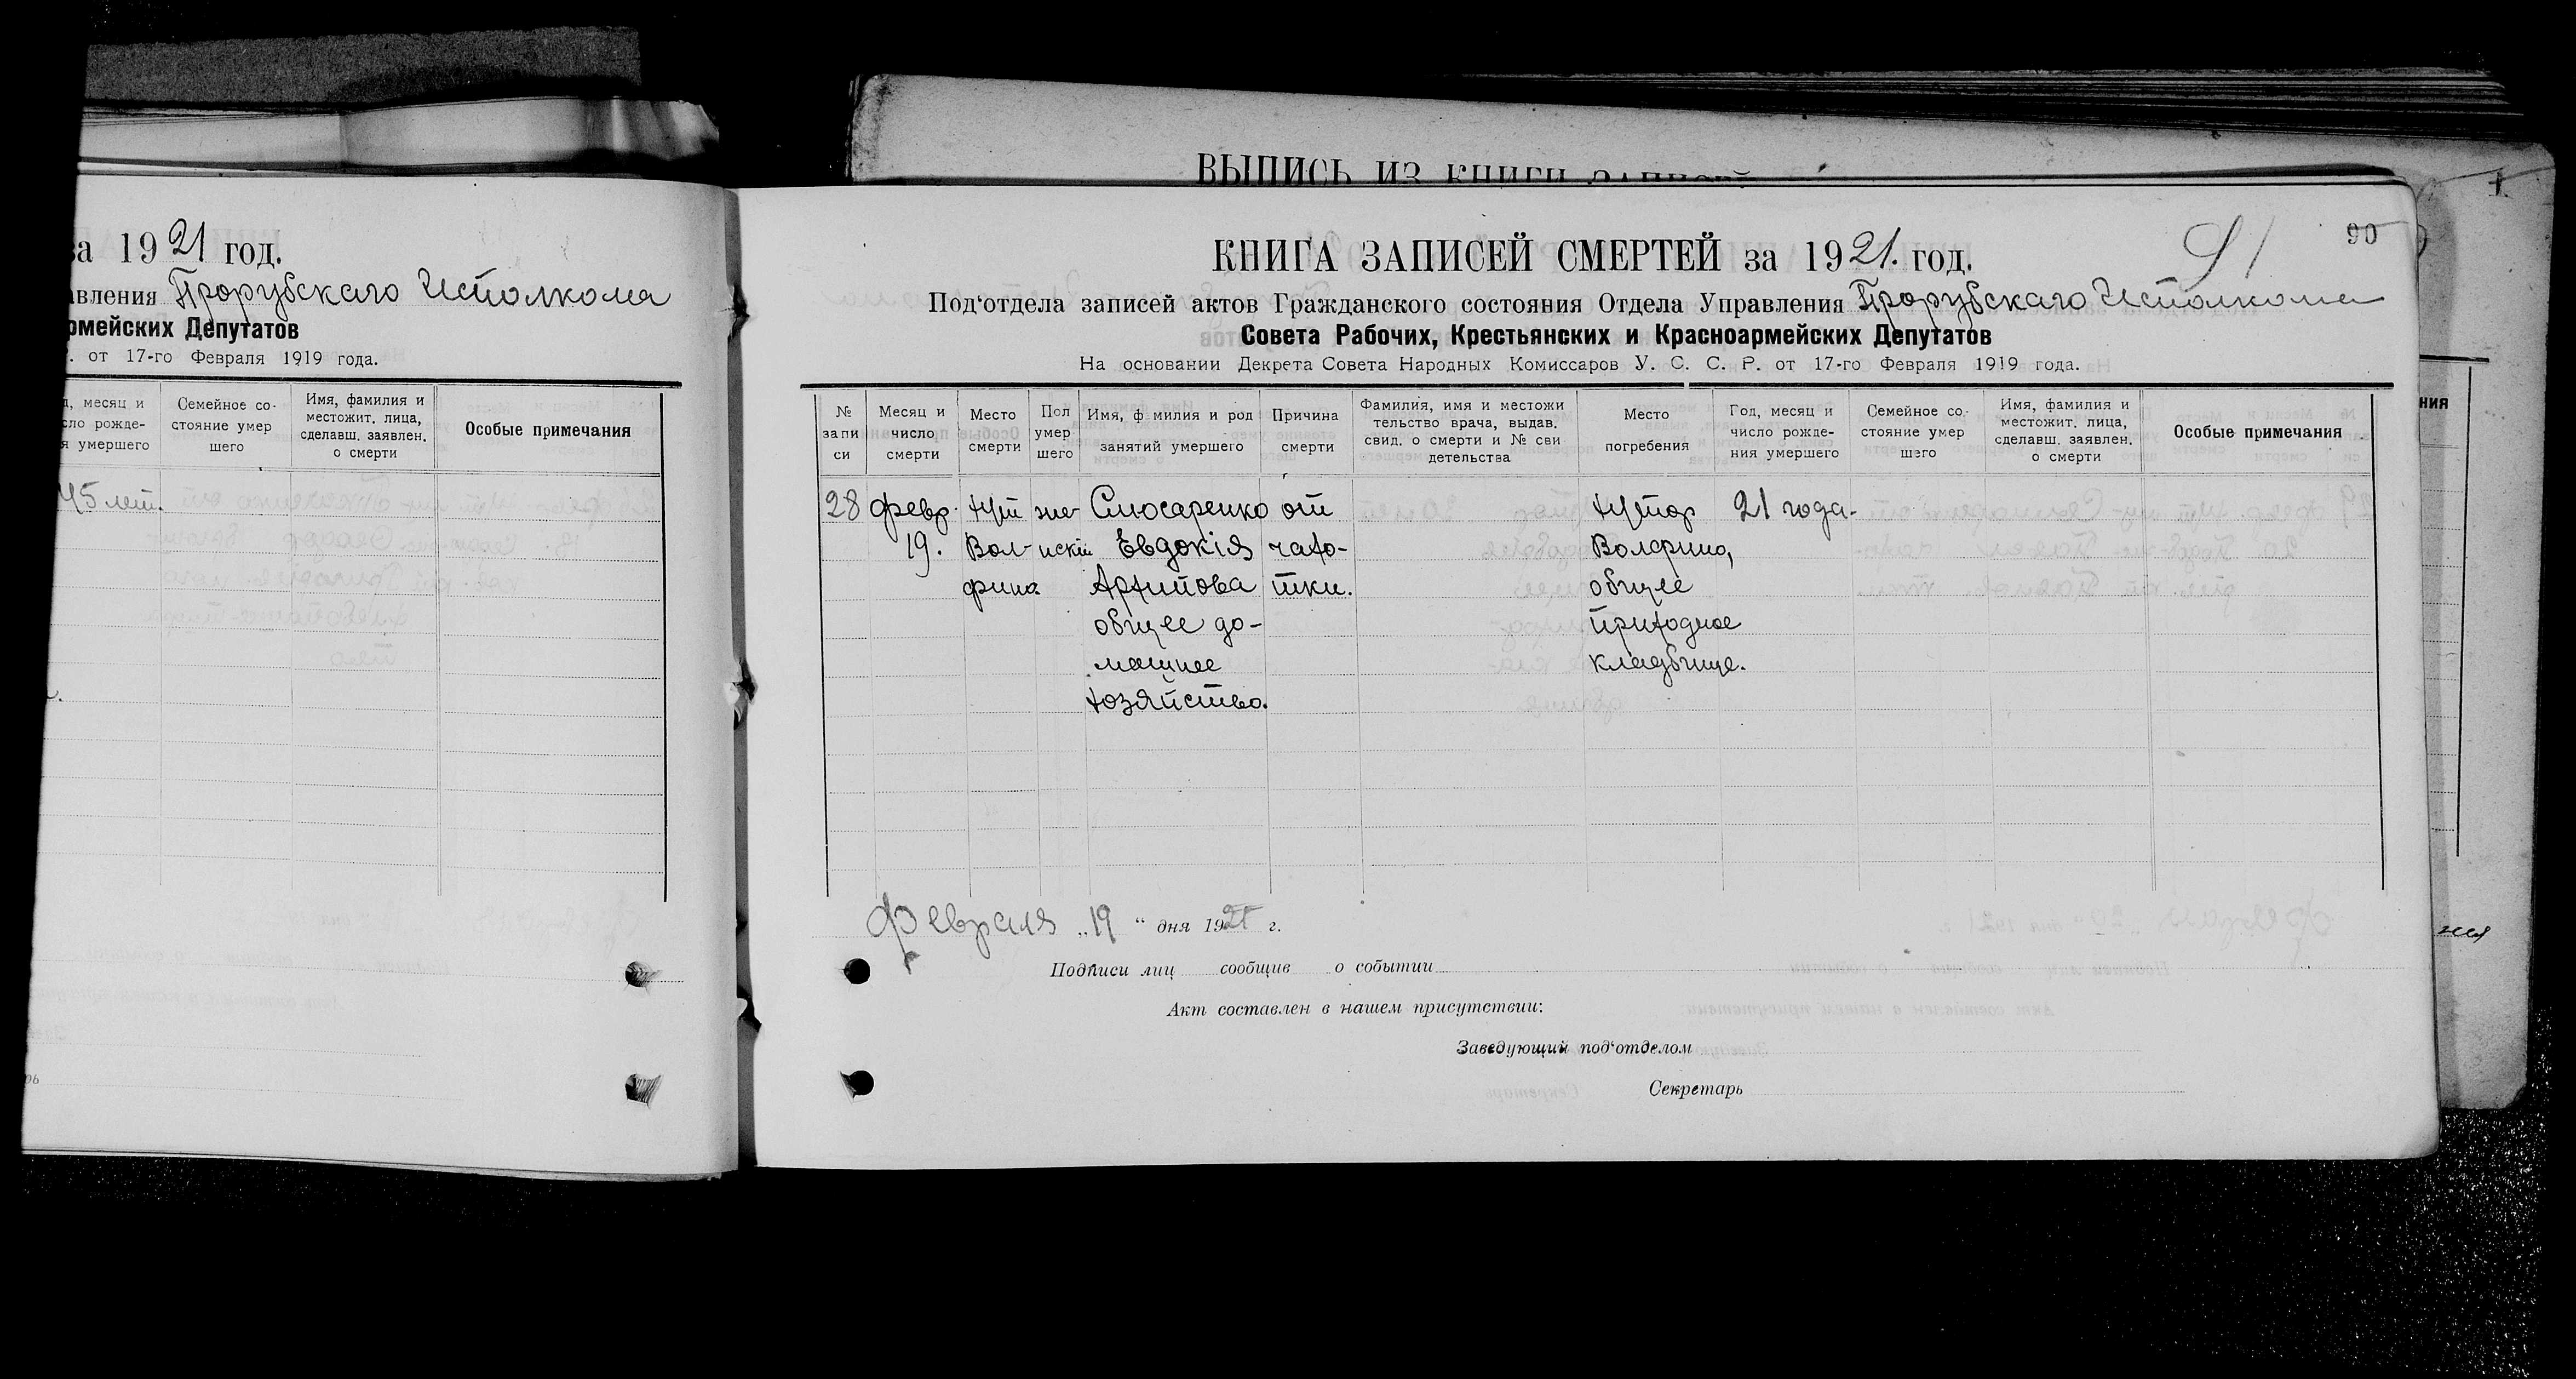 ВЫПИСЬ ИЗ КНИГИ ЗАПИСЕЙ
за 1921 год.
авления Прорубскаго Исполкома
рмейских Депутатов
. от 17-го Февраля 1919 года.
д, месяц и
сло рожде-
я умершего
Семейное со-
стояние умер
шего
Имя, фамилия и
местожит. лица,
сделавш. заявлен.
о смерти
Особые примечания
45 лет.
рь
90
91
КНИГА ЗАПИСЕЙ СМЕРТЕЙ за 1921. год.
Под‘отдела записей актов Гражданского состояния Отдела Управления Прорубскаго Исполкома
Совета Рабочих, Крестьянских и Красноармейских Депутатов
На основании Декрета Совета Народных Комиссаров У. С. С. Р. от 17-го Февраля 1919 года.
№
запи
си
Месяц и
число
смерти
Место
смерти
Пол
умер
шего
Имя, ф милия и род
занятий умершего
Причина
смерти
Фамилия, имя и местожи
тельство врача, выдав.
свид. о смерти и № сви
детельства
Место
погребения
Год, месяц и
число рожде-
ния умершего
Семейное со-
стояние умер
шего
Имя, фамилия и
местожит. лица,
сделавш. заявлен.
о смерти
Особые примечания
28
февр.
19.
хут
Вол-
фина
же-
нскій
Слюсаренко
Евдокія
Архипова
общее до-
машнее
хозяйство.
от
чахо-
тки.
хутор
Волфино,
общее
приходное
кладбище.
21 года.
Февраля „19“ дня 1921 г.
Подписи лиц сообщив о событии
Акт составлен в нашем присутствии:
Заведующий под‘отделом
Секретарь
ния